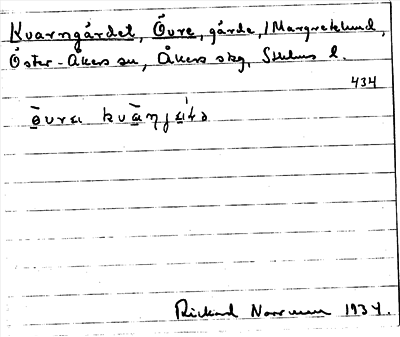 Kvarngärdet, Övre, gärde, / Margretelund,
Öster-Åkers sn, Åkers skg, Sthlms l.
434
Rickard Norrman 1934.